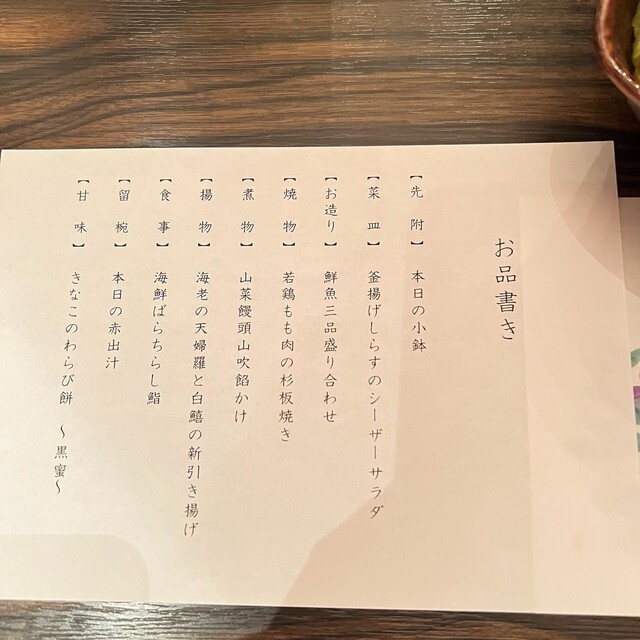 お品書き
【先附】 本日の小鉢
【菜皿】 釜揚げしらすのシーザーサラダ
【お造り】 鮮魚三品盛り合わせ
【焼物】 若鶏もも肉の杉板焼き
【煮物】 山菜饅頭山吹餡かけ
【揚物】 海老の天婦羅と白鱚の新引き揚げ
【食事】 海鮮ばらちらし鮨
【留椀】 本日の赤出汁
【甘味】 きなこのわらび餅 ～黒蜜～